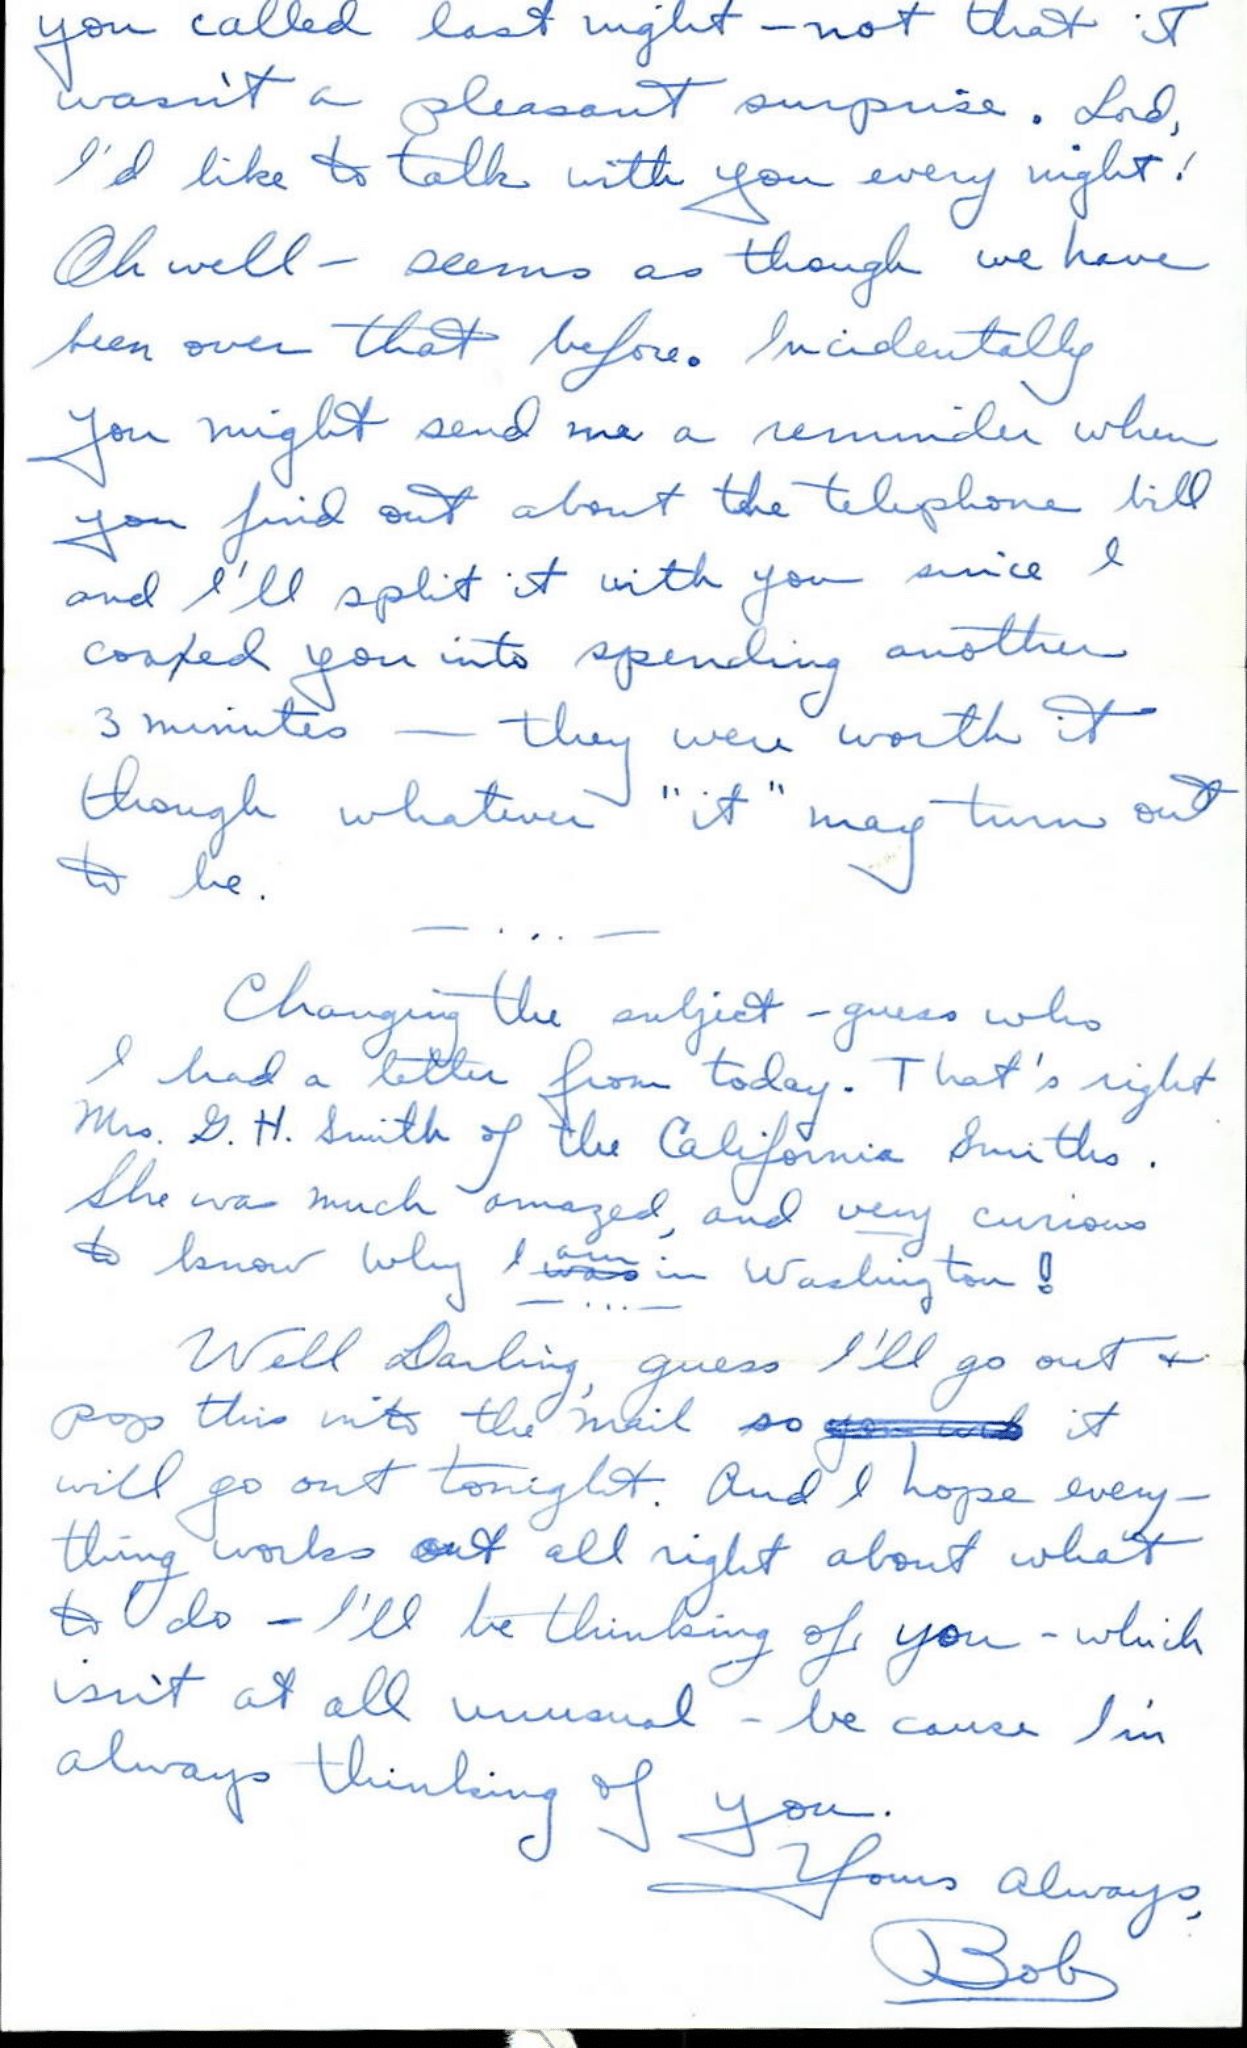 you called last night – not that it
wasn't a pleasant surprise. Lord,
I'd like to talk with you every night!
Oh well – seems as though we have
been over that before. Incidentally
you might send me a reminder when
you find out about the telephone bill
and I'll split it with you since I
coaxed you into spending another
3 minutes — they were worth it
though whatever "it" may turn out
to be.
— . . . —
Changing the subject – guess who
I had a letter from today. That's right
Mrs. G. H. Smith of the California Smiths.
She was much amazed, and very curious
to know why I was am in Washington!
— . . . —
Well Darling, guess I'll go out +
pop this into the mail so it
will go out tonight. And I hope every-
thing works out all right about what
to do – I'll be thinking of you – which
isn't at all unusual – be cause I'm
always thinking of you.
Yours always,
Bob